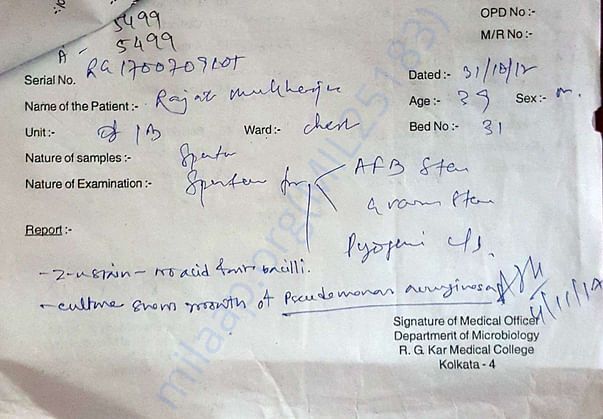 5499
A - 5499
OPD No :-
M/R No :-
Serial No. RG1700709
Dated :- 31/10/17
Name of the Patient :- Rajat Mukherjee
Age :- 39 Sex :- m.
Unit :- IB Ward :- Chest Bed No :- 31
Nature of samples :- Sputum
Nature of Examination :- Sputum for AFB Stain
Gram Stain
Pyogenic c/s.
Report :-
- Z-N stain - no acid fast bacilli.
- culture shows growth of Pseudomonas aeruginosa
Signature of Medical Officer
Department of Microbiology
R. G. Kar Medical College
Kolkata - 4
milaap.org(MIL25183)